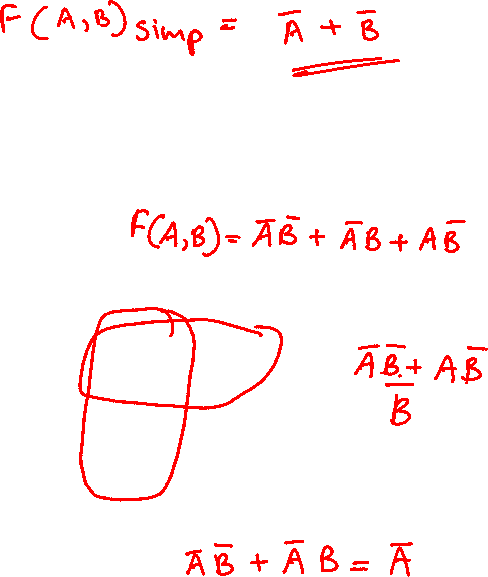 F(A,B)simp = A̅ + B̅
F(A,B) = A̅B̅ + A̅B + AB̅
A̅B̅ + AB̅
B̅
A̅B̅ + A̅B = A̅